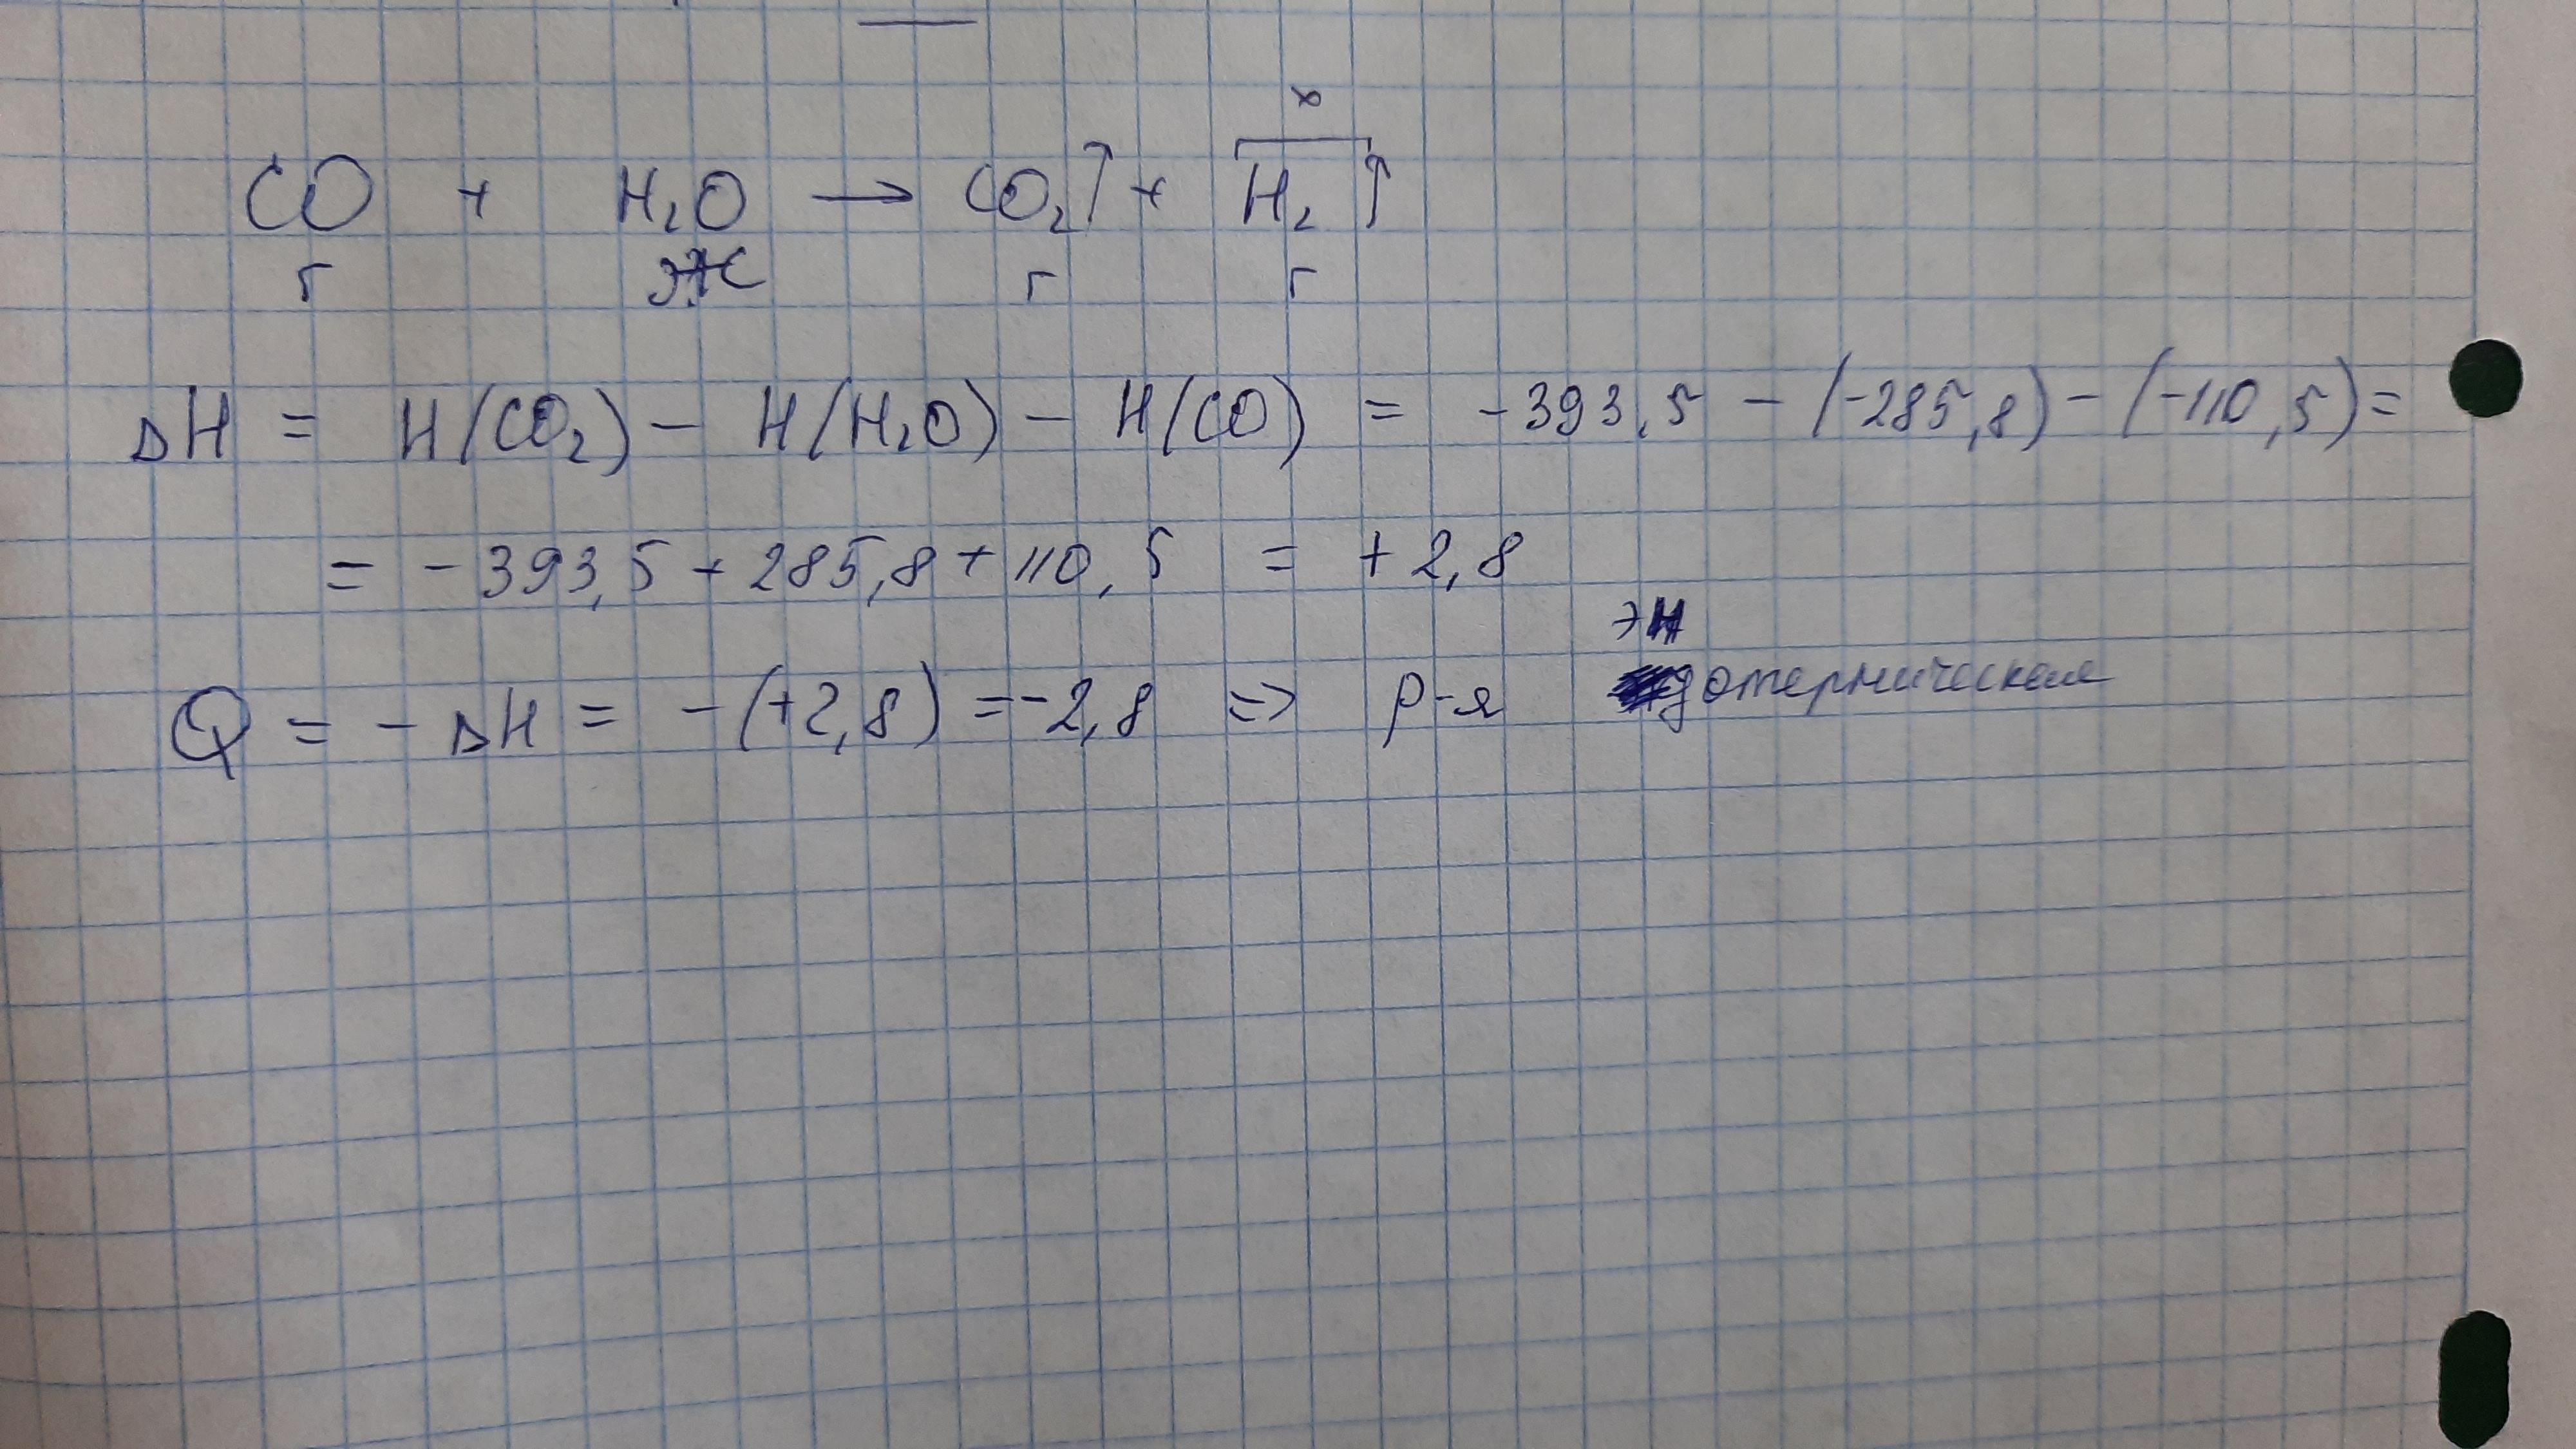 CO + H₂O → CO₂↑ + H₂↑
г ж г г
ΔH = H(CO₂) - H(H₂O) - H(CO) = -393,5 - (-285,8) - (-110,5) =
= -393,5 + 285,8 + 110,5 = +2,8
Q = -ΔH = -(+2,8) = -2,8 ⇒ р-я эндотермическая